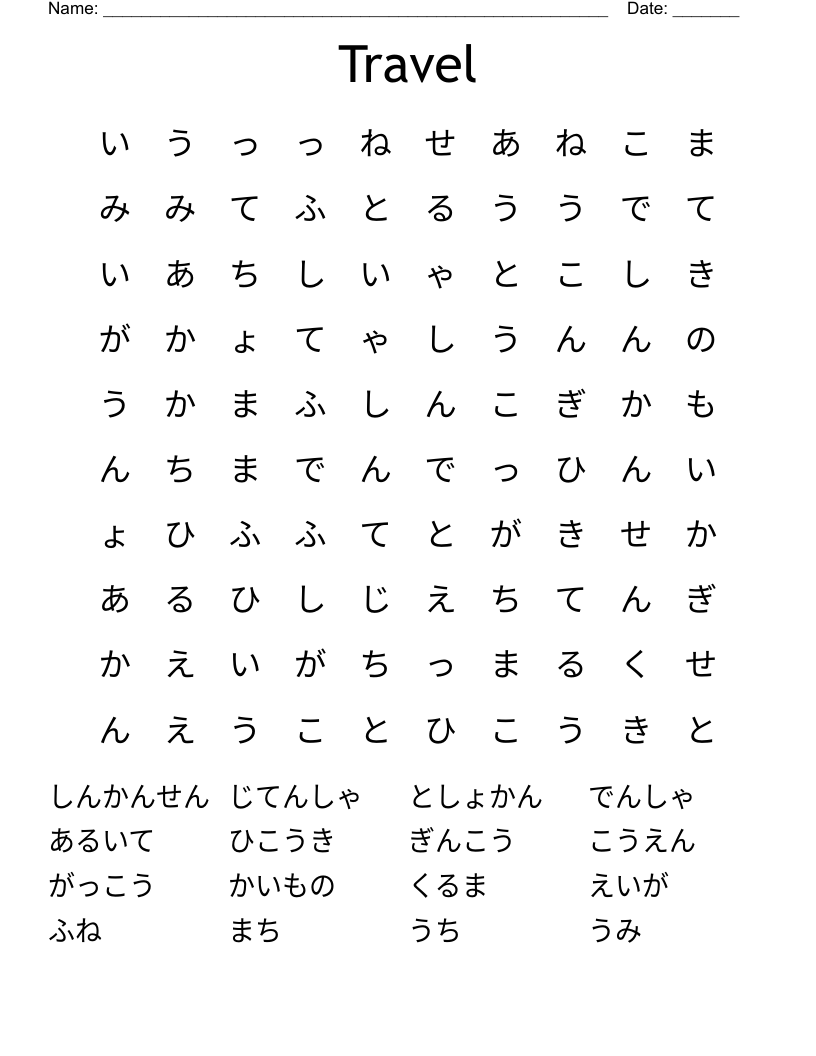 Name: ____________________________________________________________ Date: ________
Travel
い う っ っ ね せ あ ね こ ま
み み て ふ と る う う で て
い あ ち し い ゃ と こ し き
が か ょ て ゃ し う ん ん の
う か ま ふ し ん こ ぎ か も
ん ち ま で ん で っ ひ ん い
ょ ひ ふ ふ て と が き せ か
あ る ひ し じ え ち て ん ぎ
か え い が ち っ ま る く せ
ん え う こ と ひ こ う き と
しんかんせん じてんしゃ としょかん でんしゃ
あるいて ひこうき ぎんこう こうえん
がっこう かいもの くるま えいが
ふね まち うち うみ